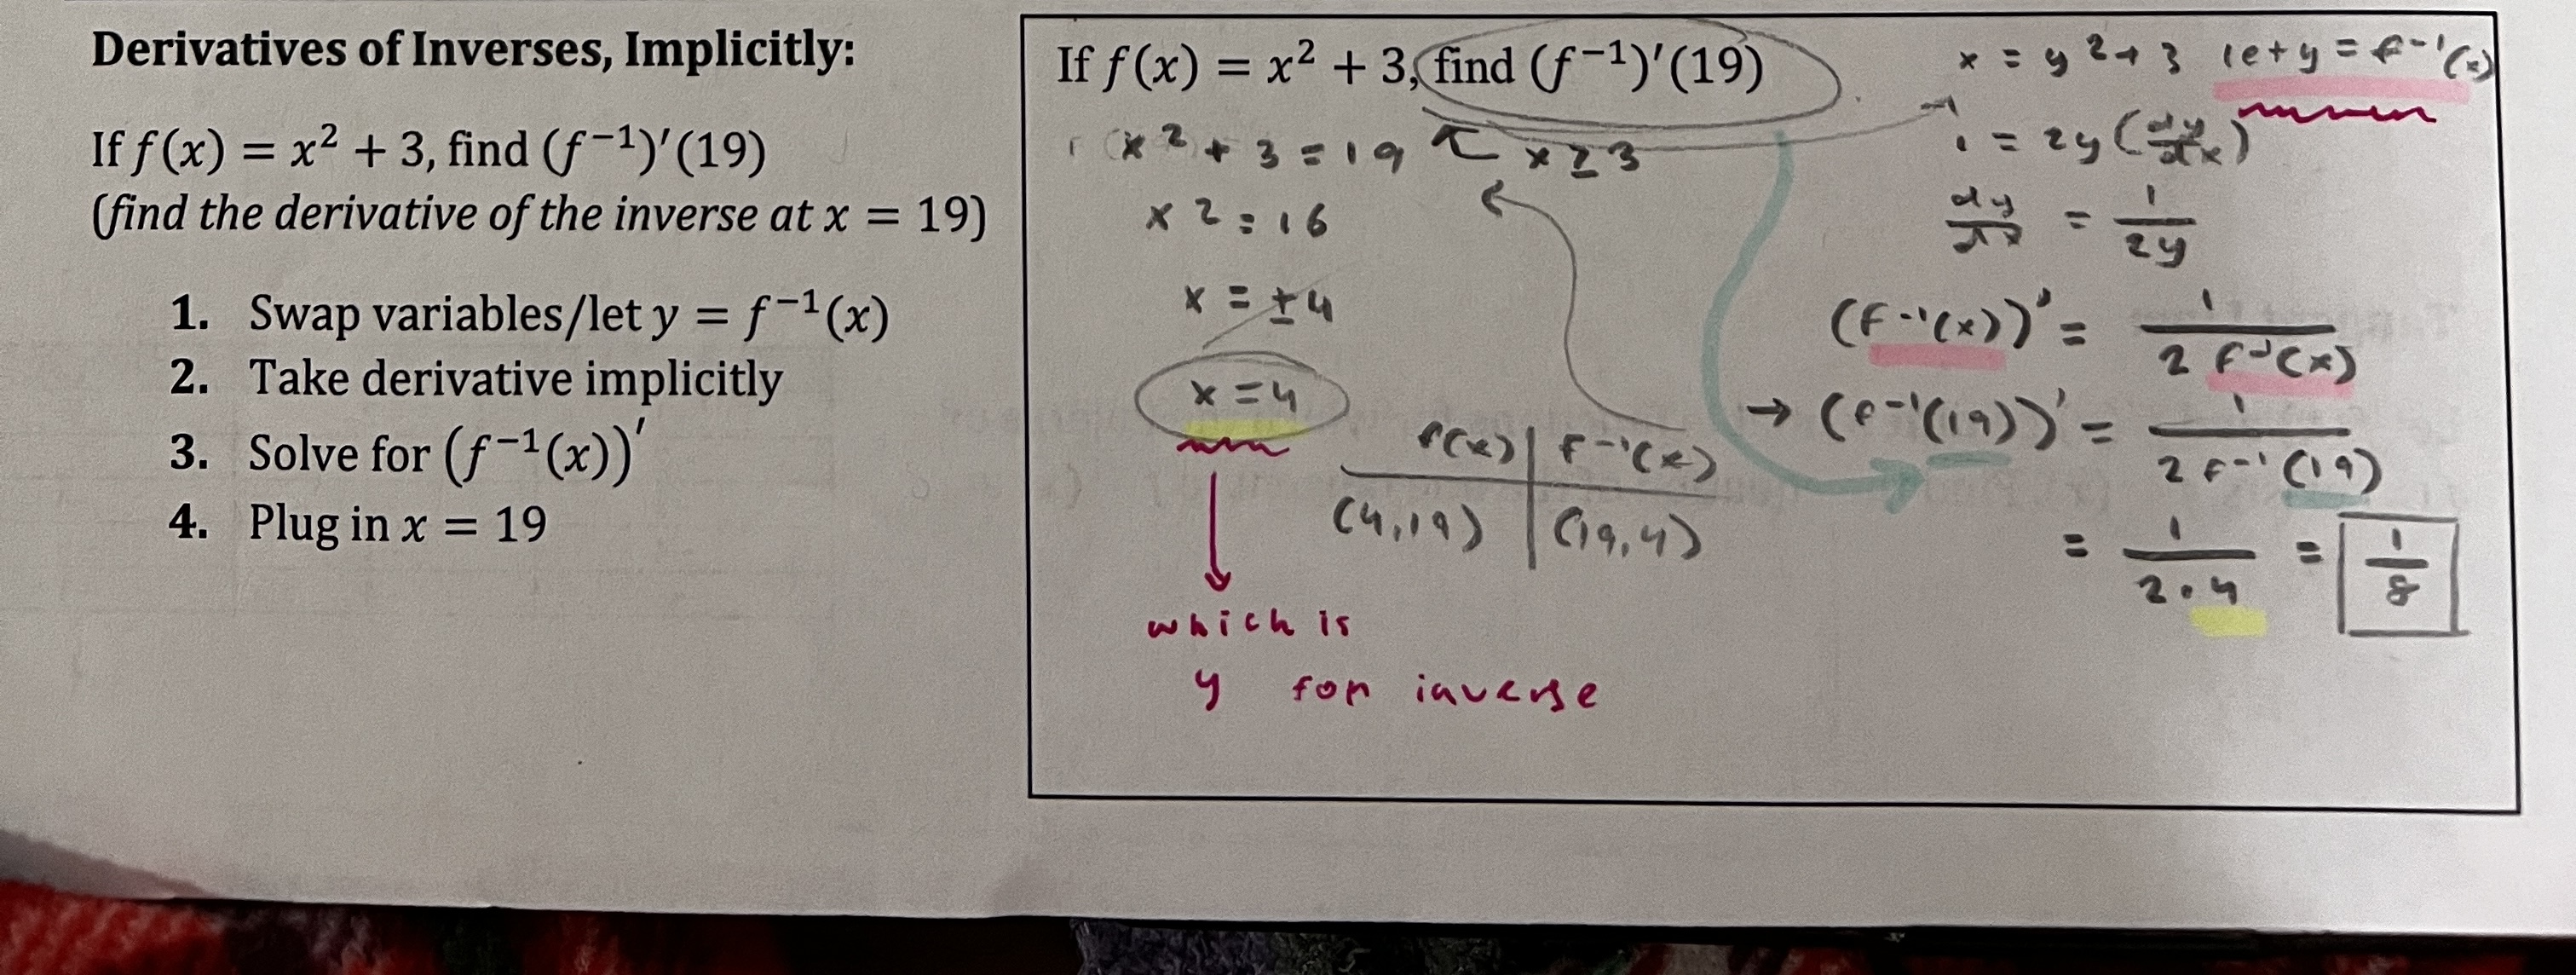 Derivatives of Inverses, Implicitly:
If f(x) = x² + 3, find (f⁻¹)′(19)
(find the derivative of the inverse at x = 19)
1. Swap variables/let y = f⁻¹(x)
2. Take derivative implicitly
3. Solve for (f⁻¹(x))′
4. Plug in x = 19
If f(x) = x² + 3, find (f⁻¹)′(19)
x² + 3 = 19
x ≥ 3
x² = 16
x = ±4
x = 4
which is
y for inverse
f(x) | f⁻¹(x)
(4,19) | (19,4)
x = y² + 3 let y = f⁻¹(x)
1 = 2y(dy/dx)
dy/dx = 1/2y
(f⁻¹(x))′ = 1/2 f⁻¹(x)
→ (f⁻¹(19))′ = 1/2 f⁻¹(19)
= 1/2·4 = 1/8